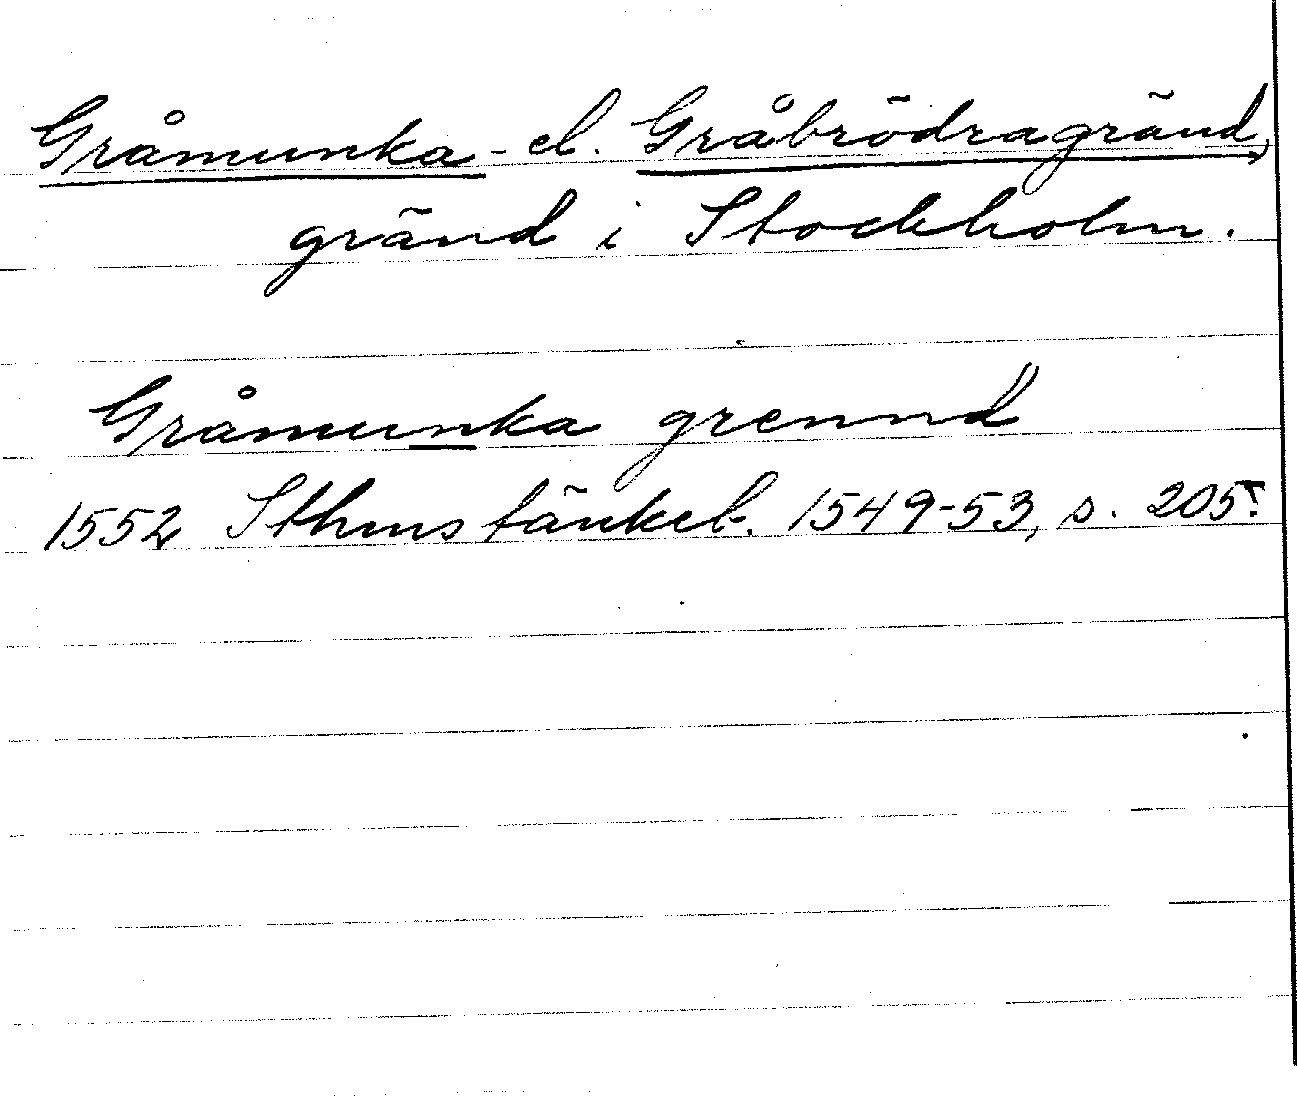 Gråmunka- el. Gråbrödragränd,
gränd i Stockholm.
Gråmunka grennd
1552 Sthms tänkeb. 1549-53, s. 205.